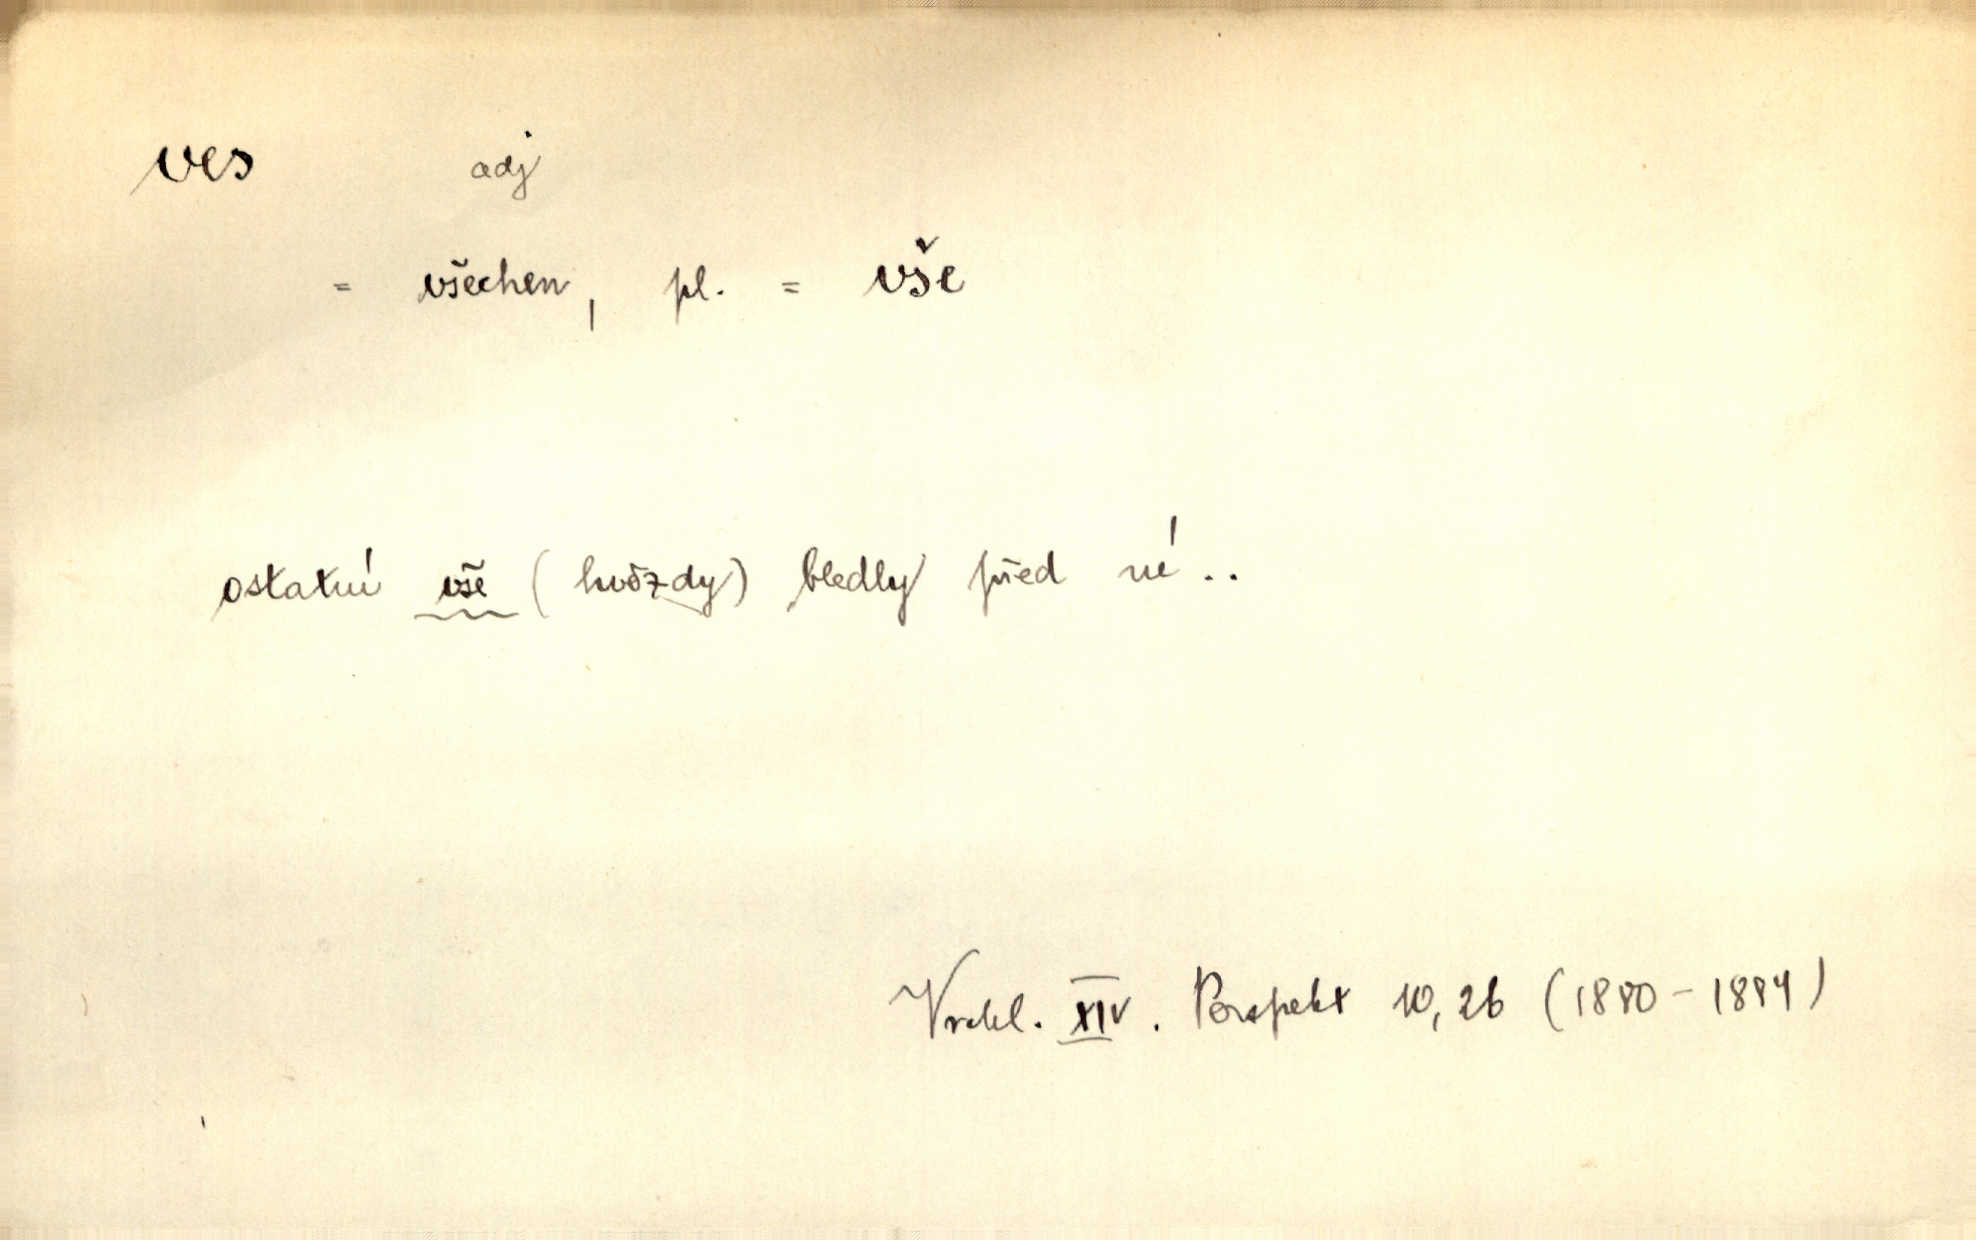 ves adj
= všechen, pl. = vše
ostatní vše (hvězdy) bledly před ní..
Vrchl. XIV. Perspekt 10, 26 (1880-1884)